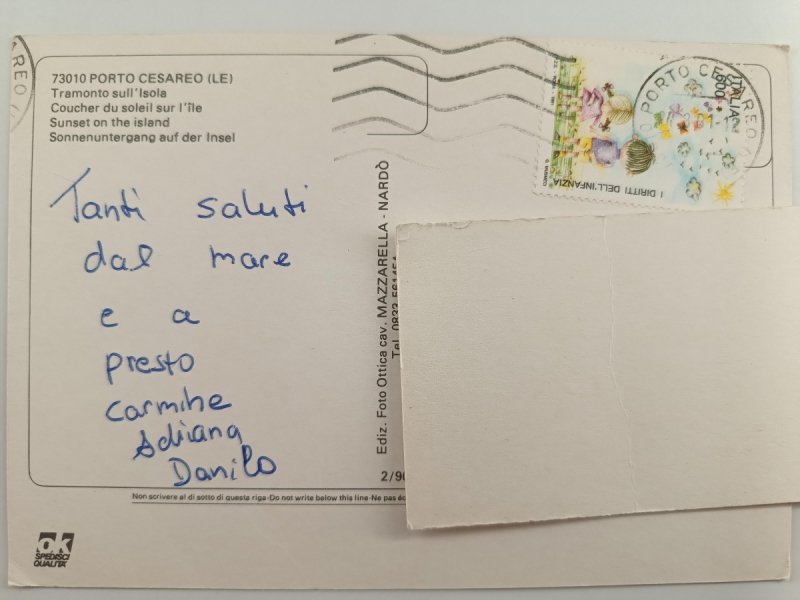 73010 PORTO CESAREO (LE)
Tramonto sull'Isola
Coucher du soleil sur l'île
Sunset on the island
Sonnenuntergang auf der Insel
Tanti saluti
dal mare
e a
presto
Carmine
Adriana
Danilo
Ediz. Foto Ottica cav. MAZZARELLA - NARDÒ
Tel. 0833
2/90
Non scrivere al di sotto di questa riga-Do not write below this line-Ne pas
ok
SPEDISCI
QUALITÀ
PORTO CESAREO
ITALIA
I DIRITTI DELL'INFANZIA
AREO